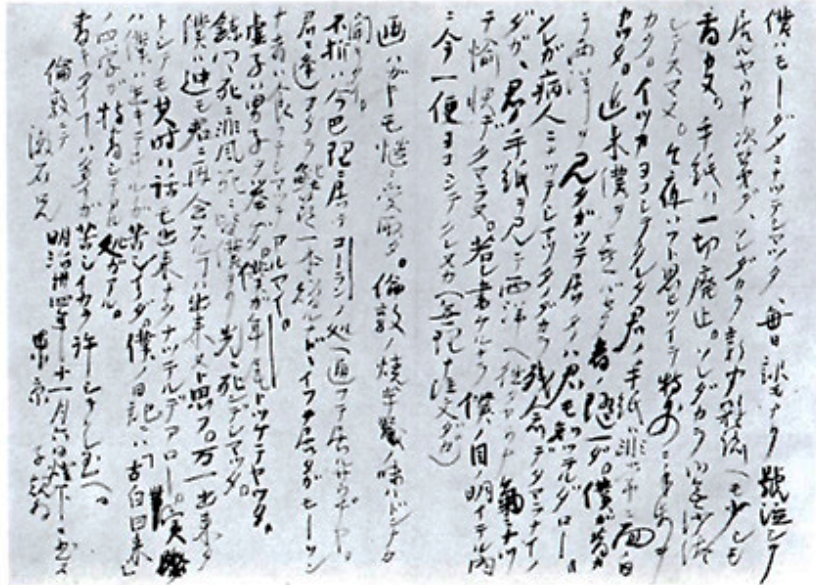 僕ハモーダメニナツテシマツタ、毎日訳モナク號泣シテ
居ルヤウナ次第ダ、ソレダカラ新聞雑誌ヘモ少シモ
書カヌ。手紙ハ一切廃止。ソレダカラ御無沙汰
シテスマヌ。今夜ハフト思ヒツイテ特別ニ手紙ヲ
カク。イツカヨコシテクレタ君ノ手紙ハ非常ニ面白
カツタ。近来僕ヲ喜バセタ者ノ随一ダ。僕ガ昔カ
ラ西洋ヲ見タガツテ居タノハ君モ知ツテルダロー。
ソレガ病人ニナツテシマツタノダカラ残念デタマラナイノ
ダガ、君ノ手紙ヲ見テ西洋ヘ往タヤウナ氣ニナツ
テ愉快デタマラヌ。若シ書ケルナラ僕ノ目ノ明イテル内
ニ今一便ヨコシテクレヌカ(無理ナ注文ダガ)
画ハガキモ慥ニ受取タ。倫敦ノ焼芋ノ味ハドンナカ
聞キタイ。
不折ハ今巴理ニ居テコーランノ処ヘ通フテ居ルサウヂヤ。
君ニ逢フタラ鰹節一本贈ルナドヽイフテ居タガモーソン
ナ者ハ食フテシマツテアルマイ。
虚子ハ男子ヲ挙ゲタ。僕ガ年尾トツケテヤツタ。
錬卿死ニ非風死ニ皆僕ヨリ先ニ死ンデシマツタ。
僕ハ迚モ君ニ再会スルヿハ出来ヌト思フ。万一出来タ
トシテモ其時ハ話モ出来ナクナツテルデアロー。実
ハ僕ハ生キテヰルノガ苦シイノダ。僕ノ日記ニハ「古白曰来」
ノ四字ガ特書シテアル処ガアル。
書キタイヿハ多イガ苦シイカラ許シテクレ玉ヘ。
明治卅四年十一月六日燈下ニ書ス
東京 子規拝
倫敦ニテ
漱石兄